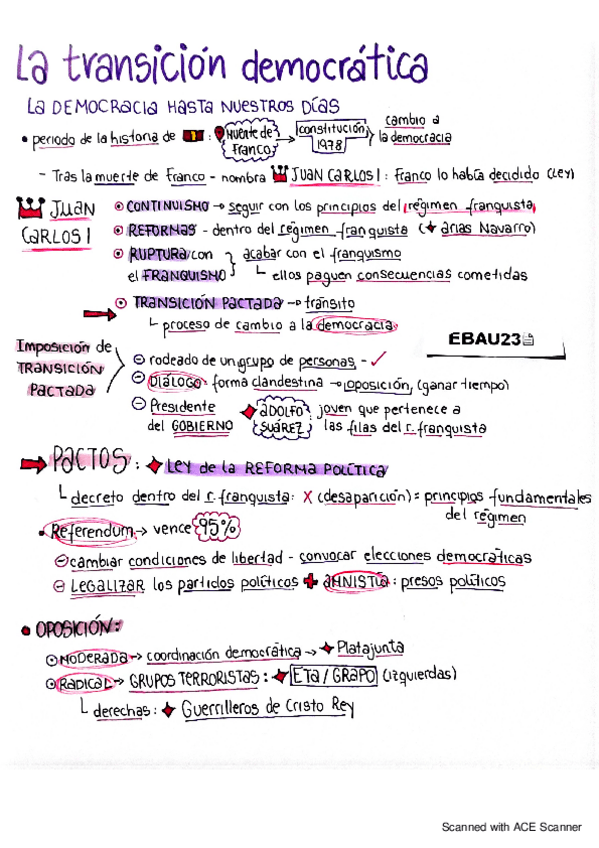 La transición democrática
La DEMOCRACIA HASTA NUESTROS DÍAS
• periodo de la historia de : Muerte de Franco → constitución 1978 } cambio a la democracia
- Tras la muerte de Franco - nombra JUAN CARLOS I : Franco lo había decidido (Ley)
JUAN CARLOS I
CONTINUISMO → seguir con los principios del régimen franquista
REFORMAS - dentro del régimen franquista (arias Navarro)
RUPTURA con el FRANQUISMO } acabar con el franquismo
└ ellos paguen consecuencias cometidas
TRANSICIÓN PACTADA → tránsito
└ proceso de cambio a la democracia
EBAU23
Imposición de TRANSICIÓN PACTADA
- rodeado de un grupo de personas, - ✓
- DIÁLOGO: forma clandestina → oposición, (ganar tiempo)
- Presidente del GOBIERNO ADOLFO SUÁREZ: joven que pertenece a las filas del r. franquista
→ PACTOS : LEY de la REFORMA POLÍTICA
└ decreto dentro del r. franquista: X (desaparición) = principios fundamentales del régimen
• Referendum → vence 95%
- cambiar condiciones de libertad - convocar elecciones democráticas
- LEGALIZAR los partidos políticos + AMNISTÍA : presos políticos
• OPOSICIÓN:
MODERADA → coordinación democrática → Platajunta
RADICAL → GRUPOS TERRORISTAS : ETA / GRAPO (izquierdas)
└ derechas : Guerrilleros de Cristo Rey
Scanned with ACE Scanner